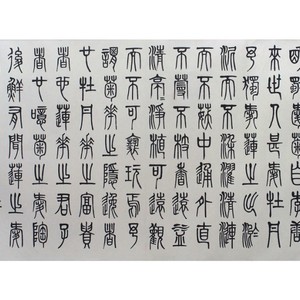 明獨愛菊自李唐
來世人甚愛牡丹
予獨愛蓮之出淤
泥而不染濯清漣
而不妖中通外直
不蔓不枝香遠益
清亭〻淨植可遠觀
而不可褻玩焉予
謂菊花之隱逸者
也牡丹花之富貴
者也蓮花之君子
者也噫菊之愛陶
後鮮有聞蓮之愛